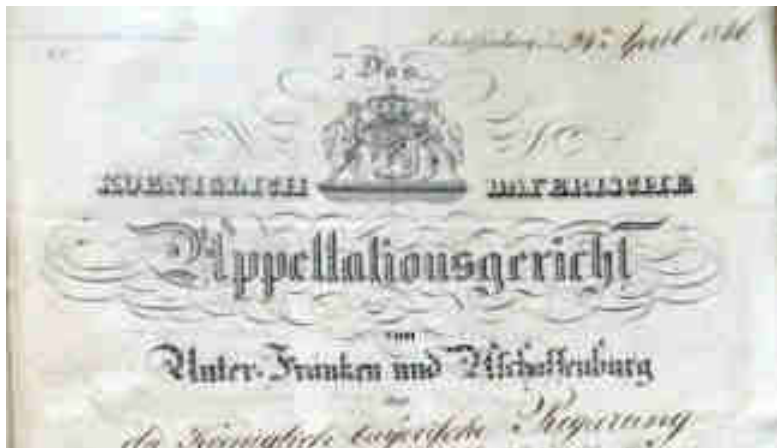 24. April
Das
KOENIGLICH BAYERISCHE
Appellationsgericht
von
Unter-Franken und Aschaffenburg
an
die Königlich bayerische Regierung